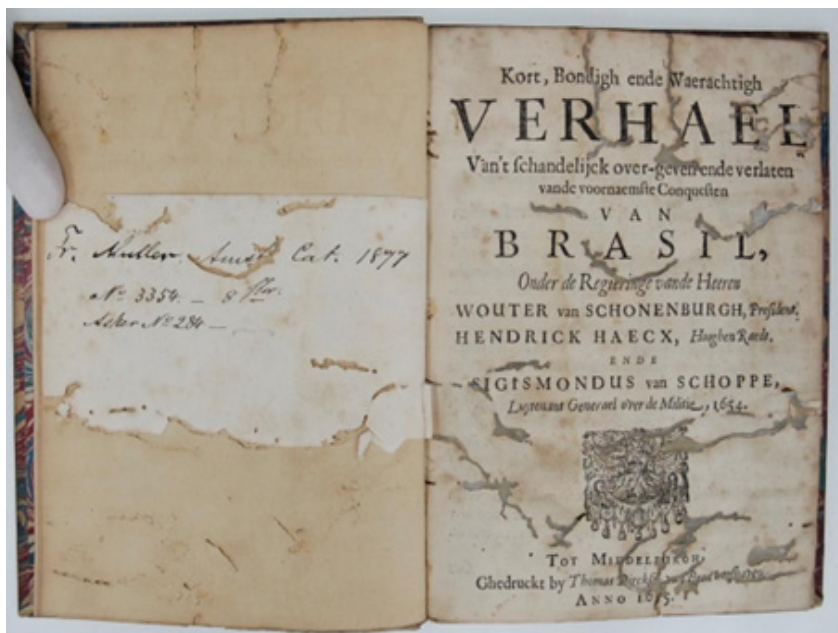 Fr. Muller. Amst. Cat. 1877
No. 3354 - 8
Asher No. 284 -
Kort, Bondigh ende Waerachtigh
VERHAEL
Van't schandelijck over-geven ende verlaten
vande voornaemste Conquesten
VAN
BRASIL,
Onder de Regieringe vande Heeren
WOUTER van SCHONENBURGH, President,
HENDRICK HAECX, Hoogben Raedt,
ENDE
SIGISMONDUS van SCHOPPE,
Luytenant Generael over de Militie, 1654.
TOT MIDDELBURGH,
Ghedruckt by Thomas Dircksz van
ANNO 1655.